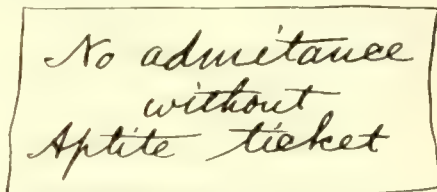 No admitance
without
Aptite ticket